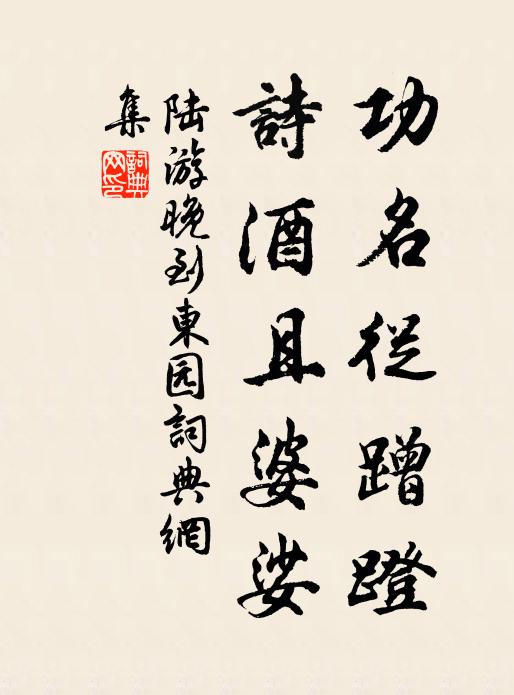 功名從蹭蹬
詩酒且婆娑
陆游晚到東园詞典網
集
詞典
网印